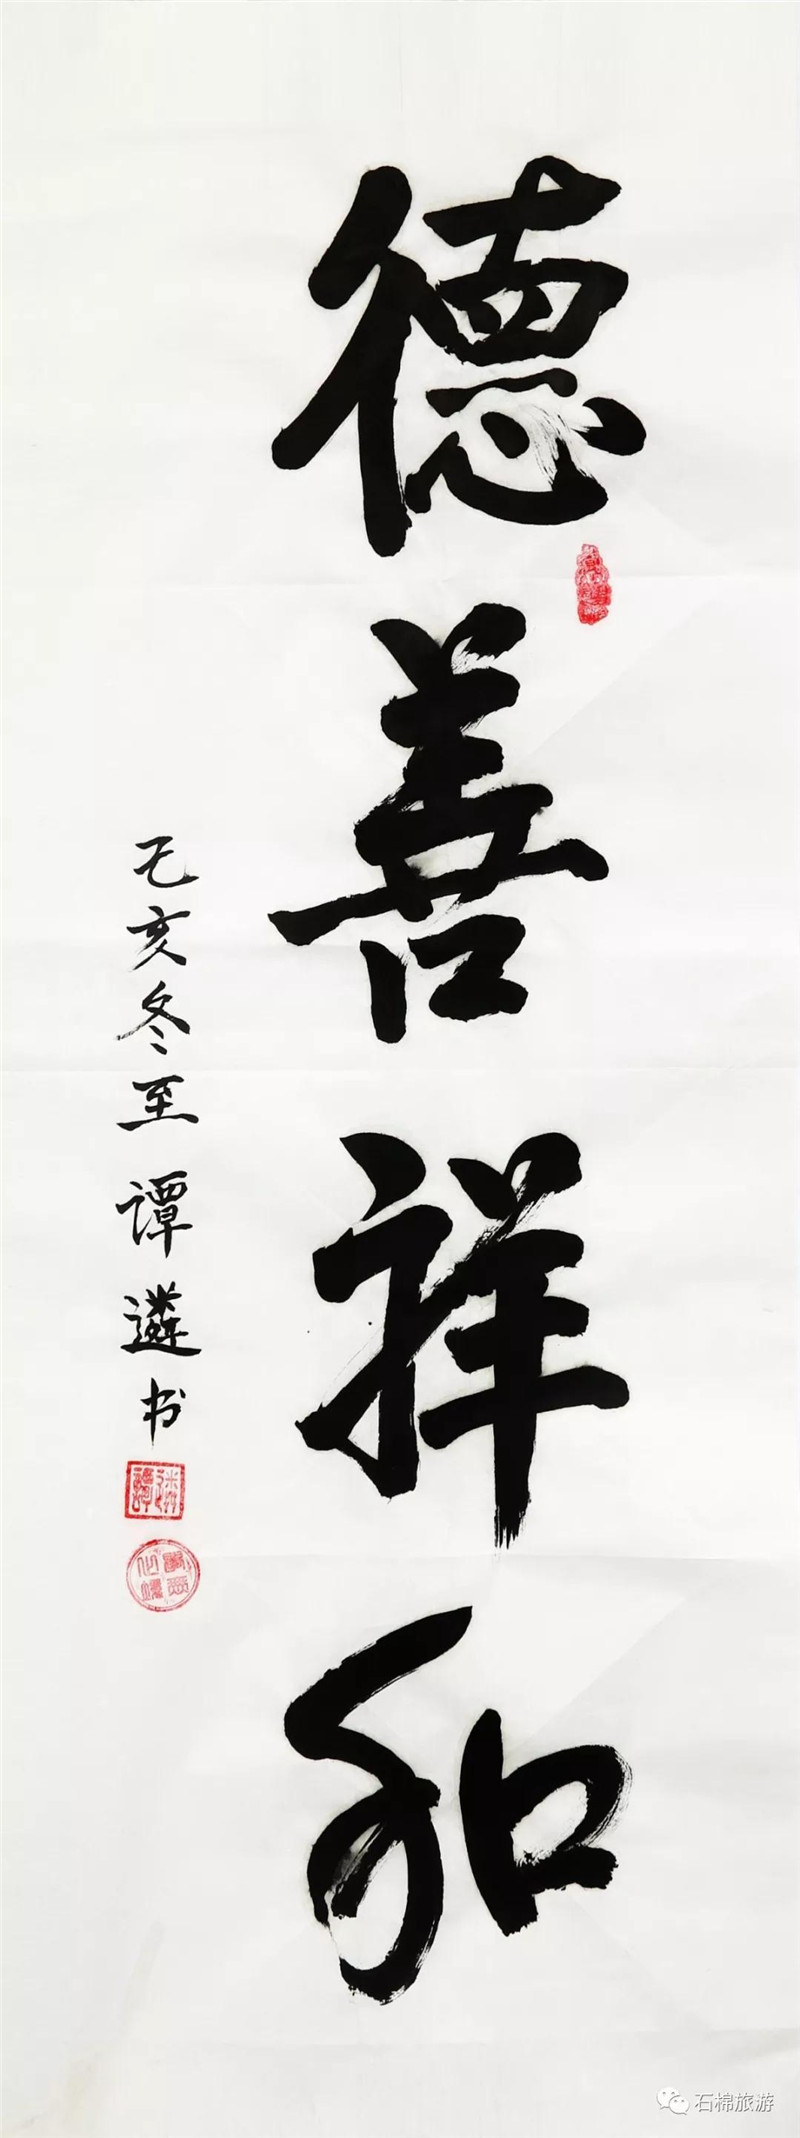 德善祥和
己亥冬至 谭遴书
石棉旅游